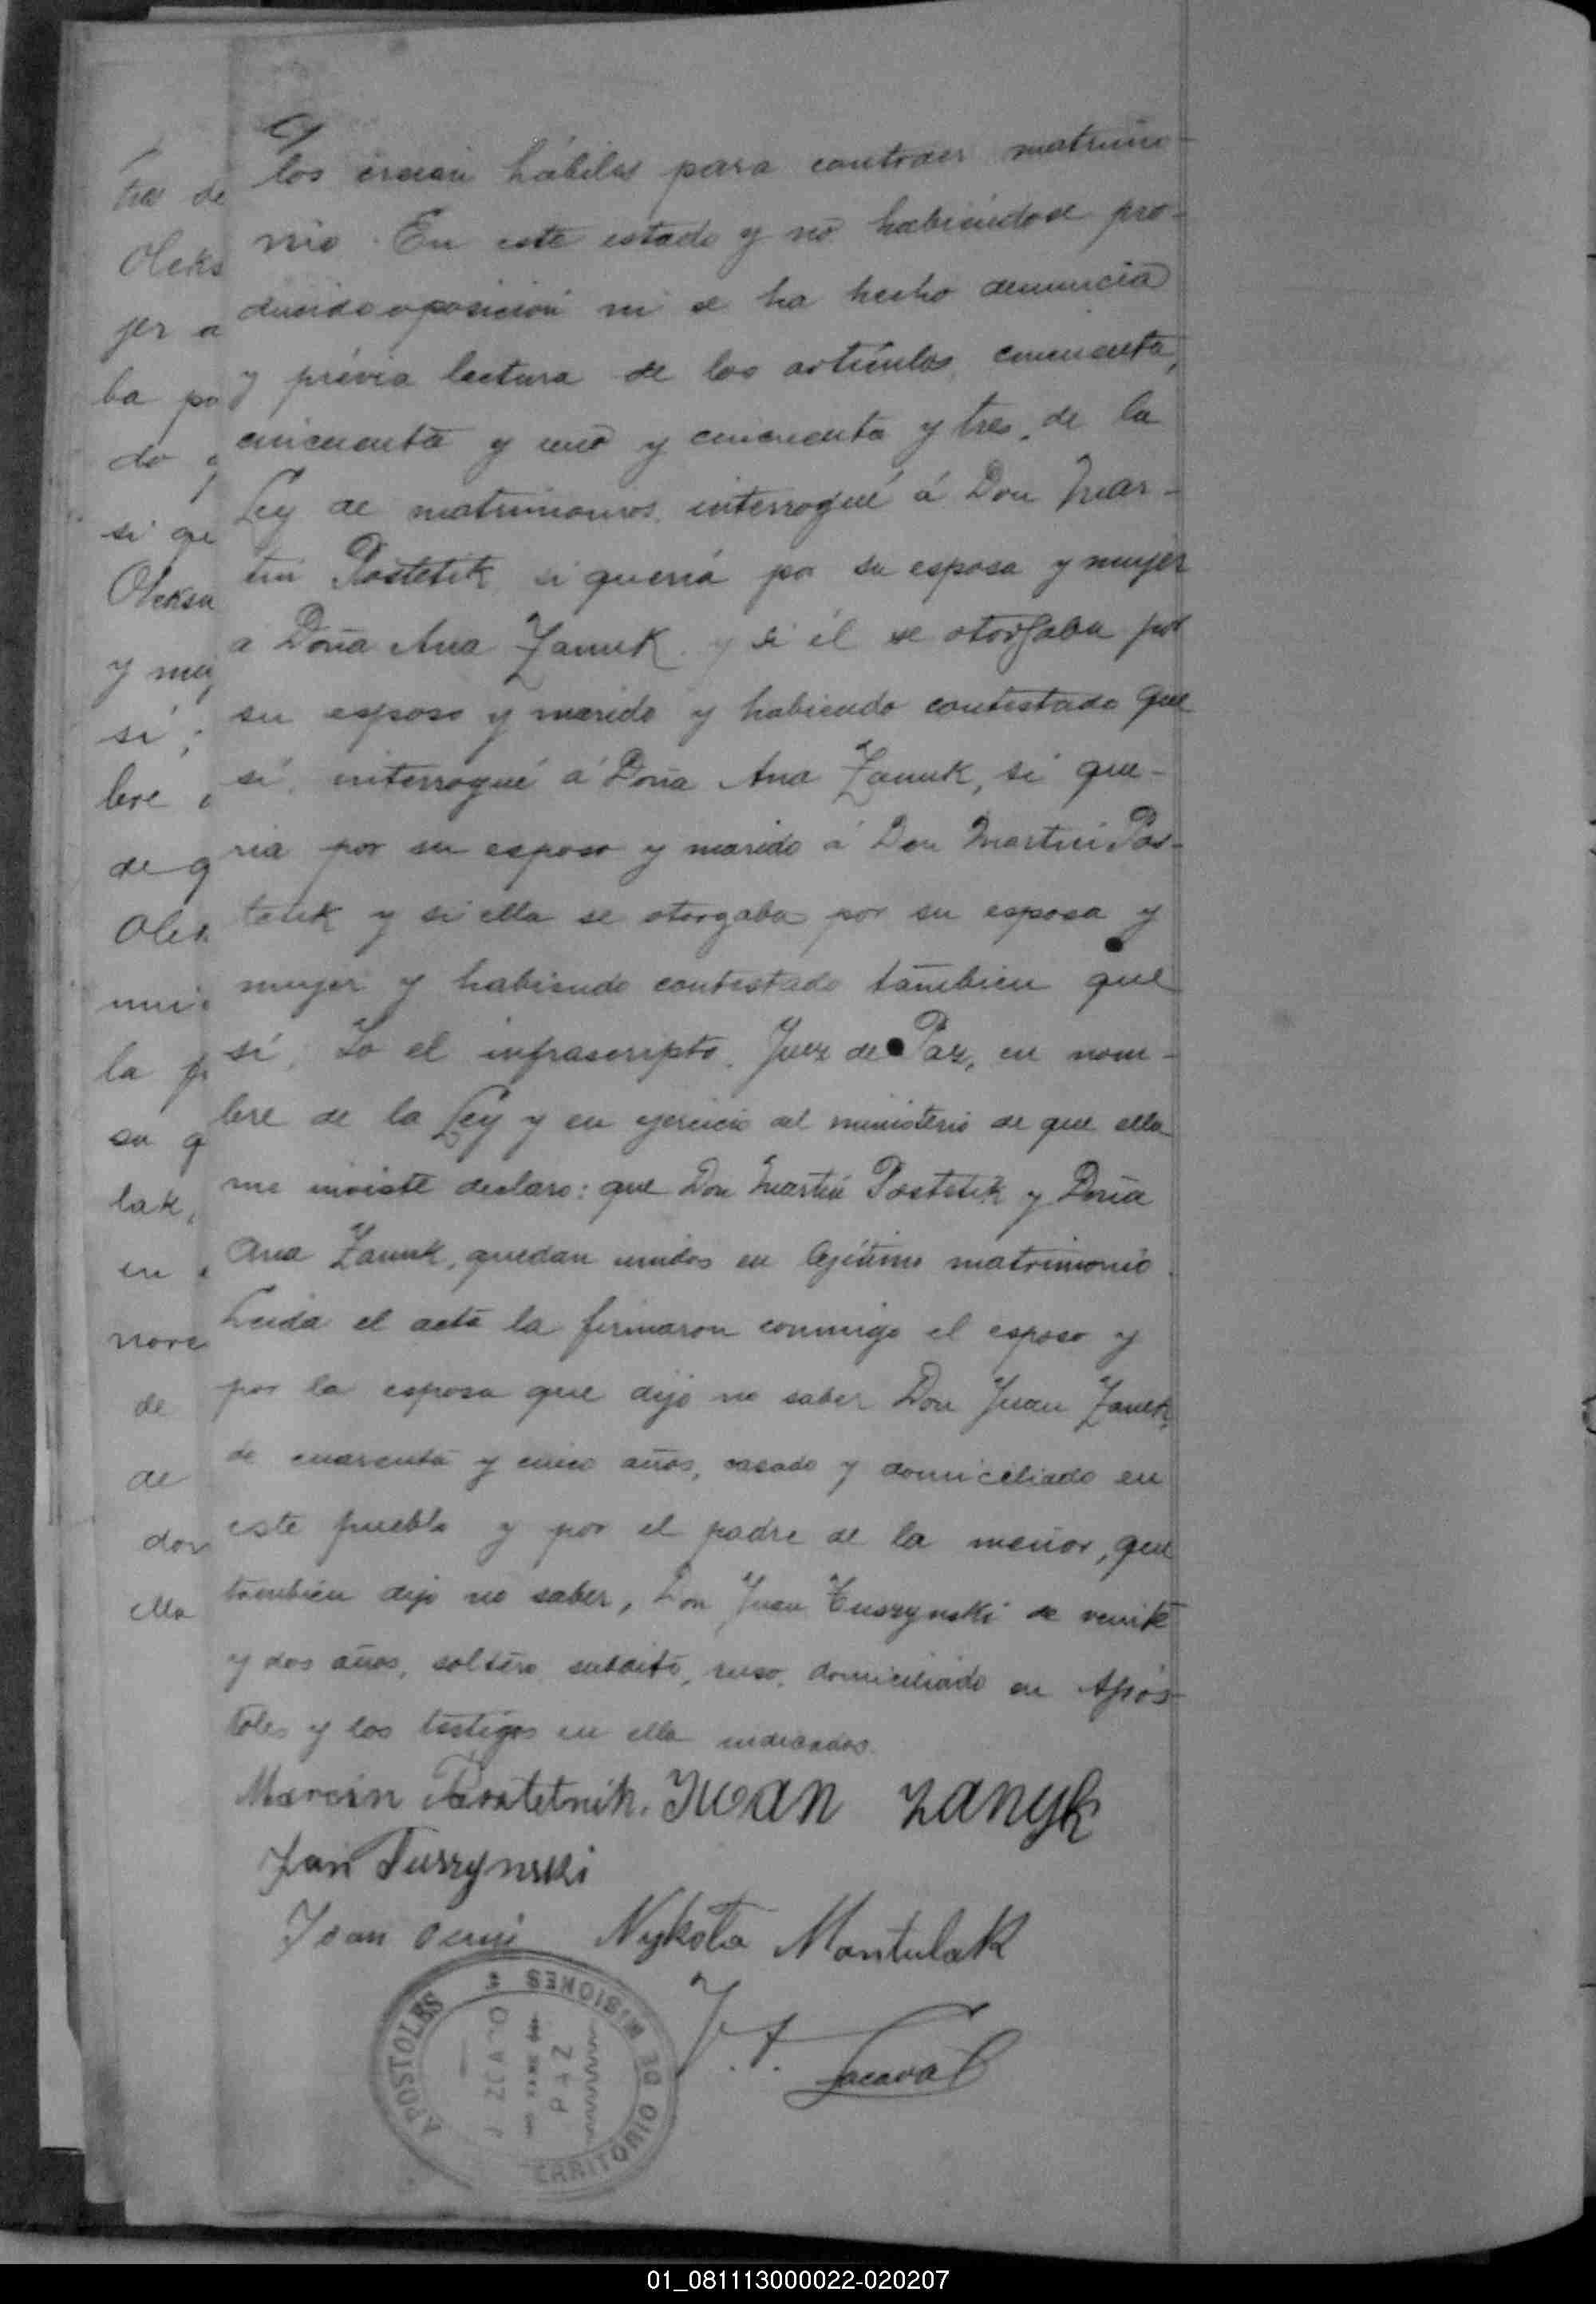 los creían hábiles para contraer matrimo-
nio. En este estado y no habiéndose pro-
ducido oposición ni se ha hecho denuncia
y prévia lectura de los artículos cincuenta,
cincuenta y uno y cincuenta y tres, de la
Ley de matrimonios, interrogué á Don Mar-
tin Postetik si quería por su esposa y mujer
a Doña Ana Zanuk y si él se otorgaba por
su esposo y marido y habiendo contestado que
sí, interrogué á Doña Ana Zanuk, si que-
ria por su esposo y marido á Don Martin Pos-
tetik y si ella se otorgaba por su esposa y
mujer y habiendo contestado tambien que
sí, Yo el infrascripto, Juez de Paz, en nom-
bre de la Ley y en ejercicio del ministerio de que ella
me inviste declaro: que Don Martin Postetik y Doña
Ana Zanuk, quedan unidos en legítimo matrimonio.
Leida el acta la firmaron conmigo el esposo y
por la esposa que dijo no saber Don Juan Zanuk,
de cuarenta y cinco años, casado y domiciliado en
este pueblo y por el padre de la menor, que
tambien dijo no saber, Don Juan Tuszynski de veinte
y dos años, soltero, subdito, ruso, domiciliado en Após-
toles y los testigos en ella indicados.
Marcin Postetnik. Iwan Zanyk
Jan Tuszynski
Ivan Nykola Montulak
J. A. Lacaval
APOSTOLES TERRITORIO DE MISIONES
PAZ
01_081113000022-020207